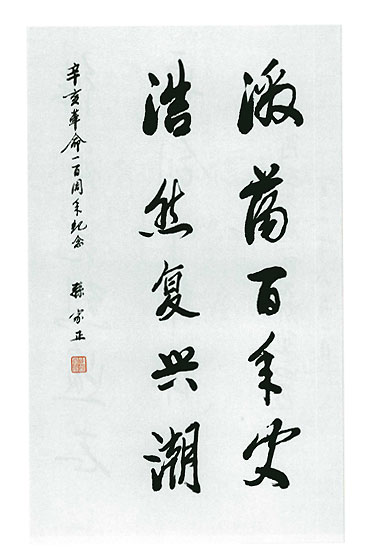 激荡百年史
浩然复兴潮
辛亥革命一百周年纪念
孙家正